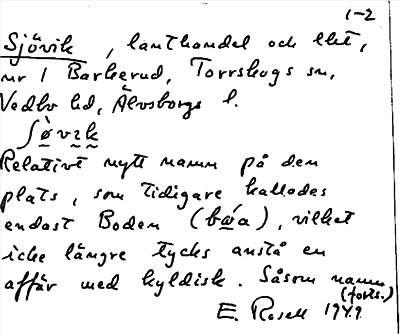 1-2
Sjövik, lanthandel och lht,
nr 1 Barkerud, Torrskogs sn,
Vedbo hd, Älvsborgs l.
Relativt nytt namn på den
plats, som tidigare kallades
endast Boden, vilket
icke längre tycks anstå en
affär med kyldisk. Såsom namn
(forts.)
E. Rosell 1949